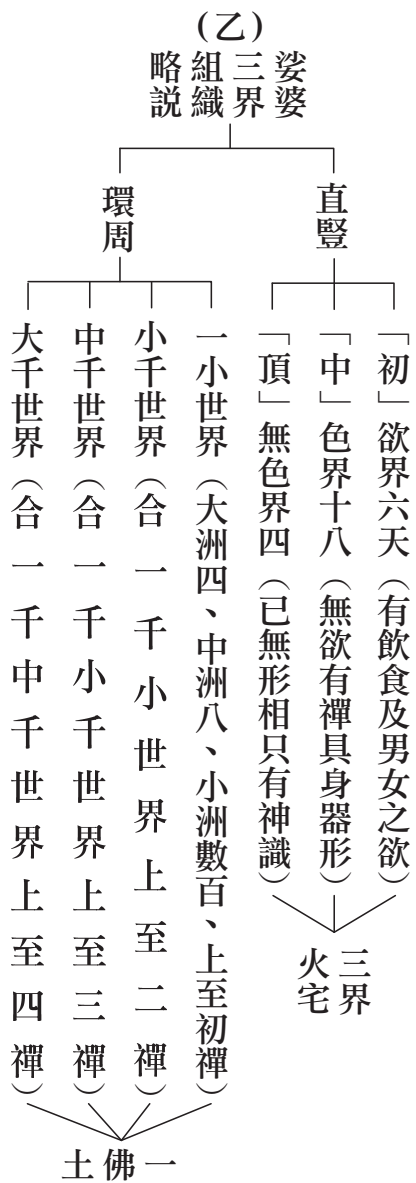 (乙)
娑婆
三界
組織
略說
直豎
「初」欲界六天（有飲食及男女之欲）
「中」色界十八（無欲有禪具身器形）
「頂」無色界四（已無形相只有神識）
三界
火宅
環周
一小世界（大洲四、中洲八、小洲數百、上至初禪）
小千世界（合一千小世界上至二禪）
中千世界（合一千小千世界上至三禪）
大千世界（合一千中千世界上至四禪）
一佛土